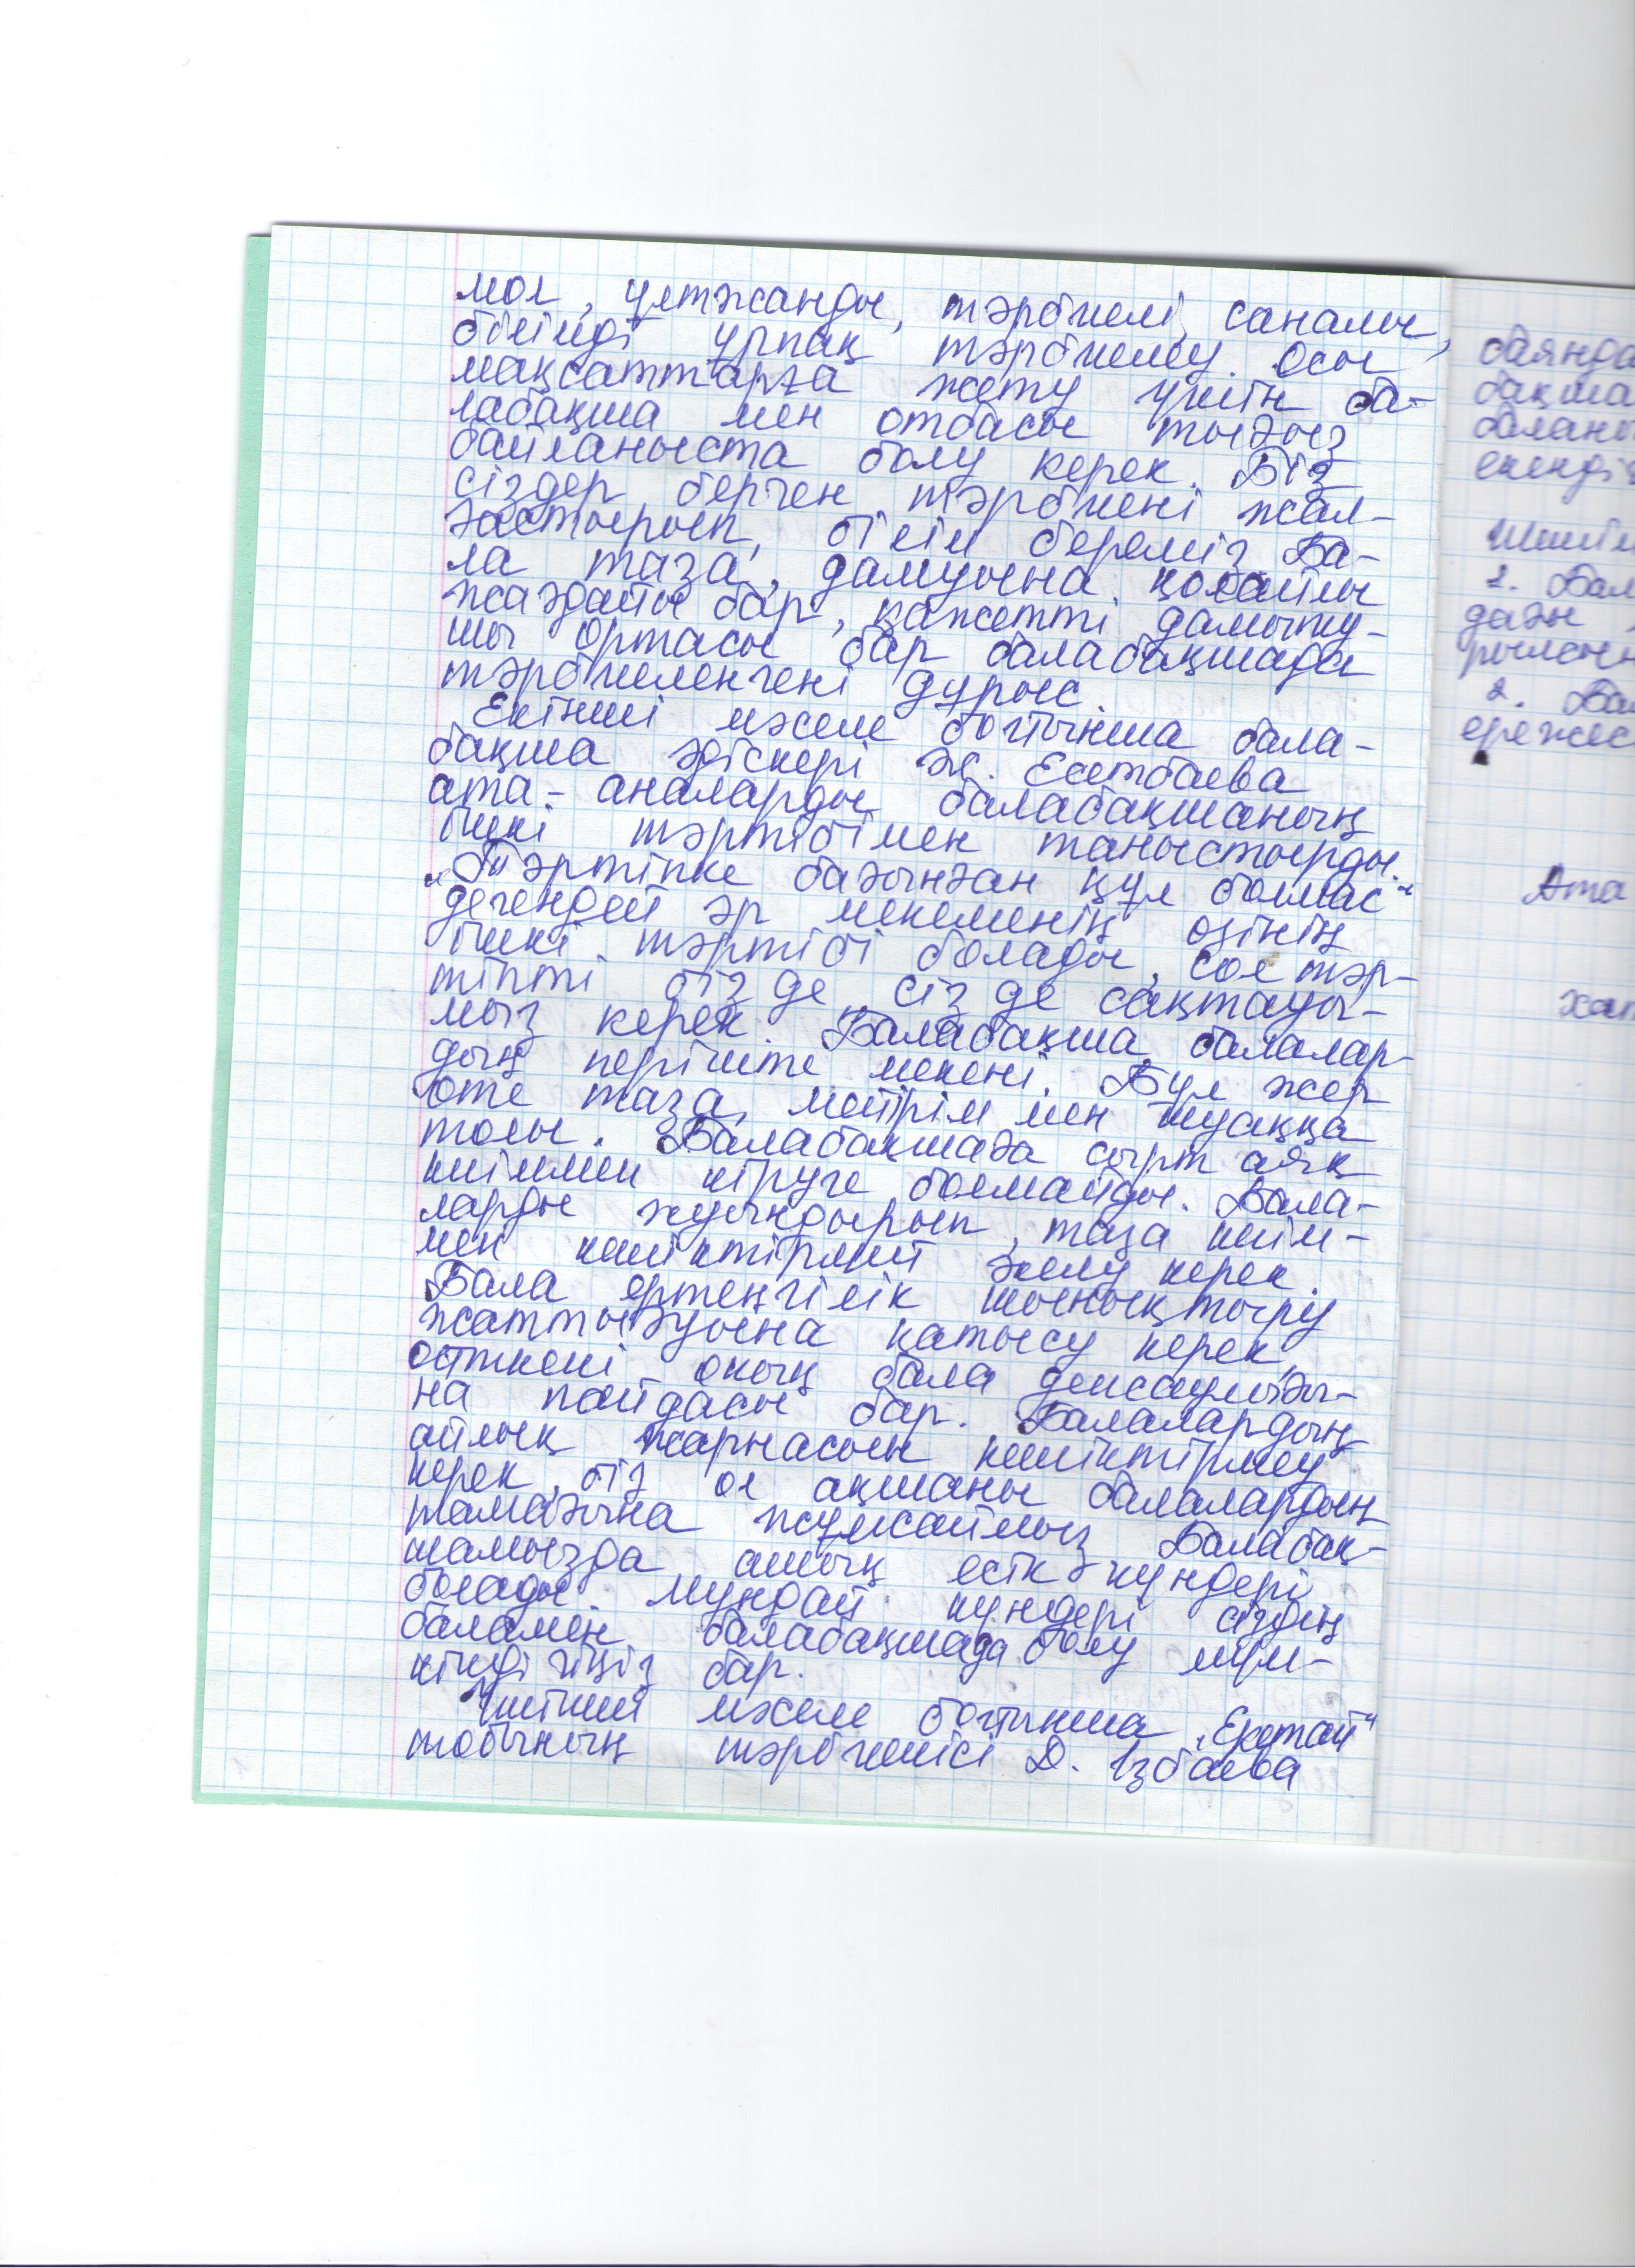 мол, ұлтжанды, тәрбиелі, саналы,
білімді ұрпақ тәрбиелеу. Осы
мақсаттарға жету үшін ба-
лабақша мен отбасы тығыз
байланыста болу керек. Біз
сіздер берген тәрбиені жал-
ғастырып, білім береміз. Ба-
ла таза, дамуына қолайлы
жағдайы бар, қажетті дамыту-
шы ортасы бар балабақшада
тәрбиеленгені дұрыс.
Екінші мәселе бойынша бала-
бақша әдіскері Ж. Есетбаева
ата-аналарды балабақшаның
ішкі тәртібімен таныстырды.
„Тәртіпке бағынған құл болмас"
дегендей әр мекеменің өзінің
ішкі тәртібі болады, сол тәр-
тіпті біз де сіз де сақтауы-
мыз керек. Балабақша балалар-
дың періште мекені. Бұл жер
өте таза, мейірім мен шуаққа
толы. Балабақшаға сырт аяқ
киіммен кіруге болмайды. Бала-
ларды жуындырып, таза киім-
мен кешіктірмей әкелу керек.
Бала ертеңгілік шынықтыру
жаттығуына қатысу керек,
өйткені оның бала денсаулығы-
на пайдасы бар. Балалардың
айлық жарнасын кешіктірмеу
керек, біз ол ақшаны балалардың
тамағына жұмсаймыз. Балабақ-
шамызда ашық есік күндері
болады. Мұндай күндері сіздің
баламен балабақшада болу мүм-
кіндігіңіз бар.
Үшінші мәселе бойынша „Еркетай"
тобының тәрбиешісі Д. Ізбаева
баянда
бақша
баланы
екенді
Шешім
1. Бал
дағы
рылсын
2. Ба
ережес
Ата
хат